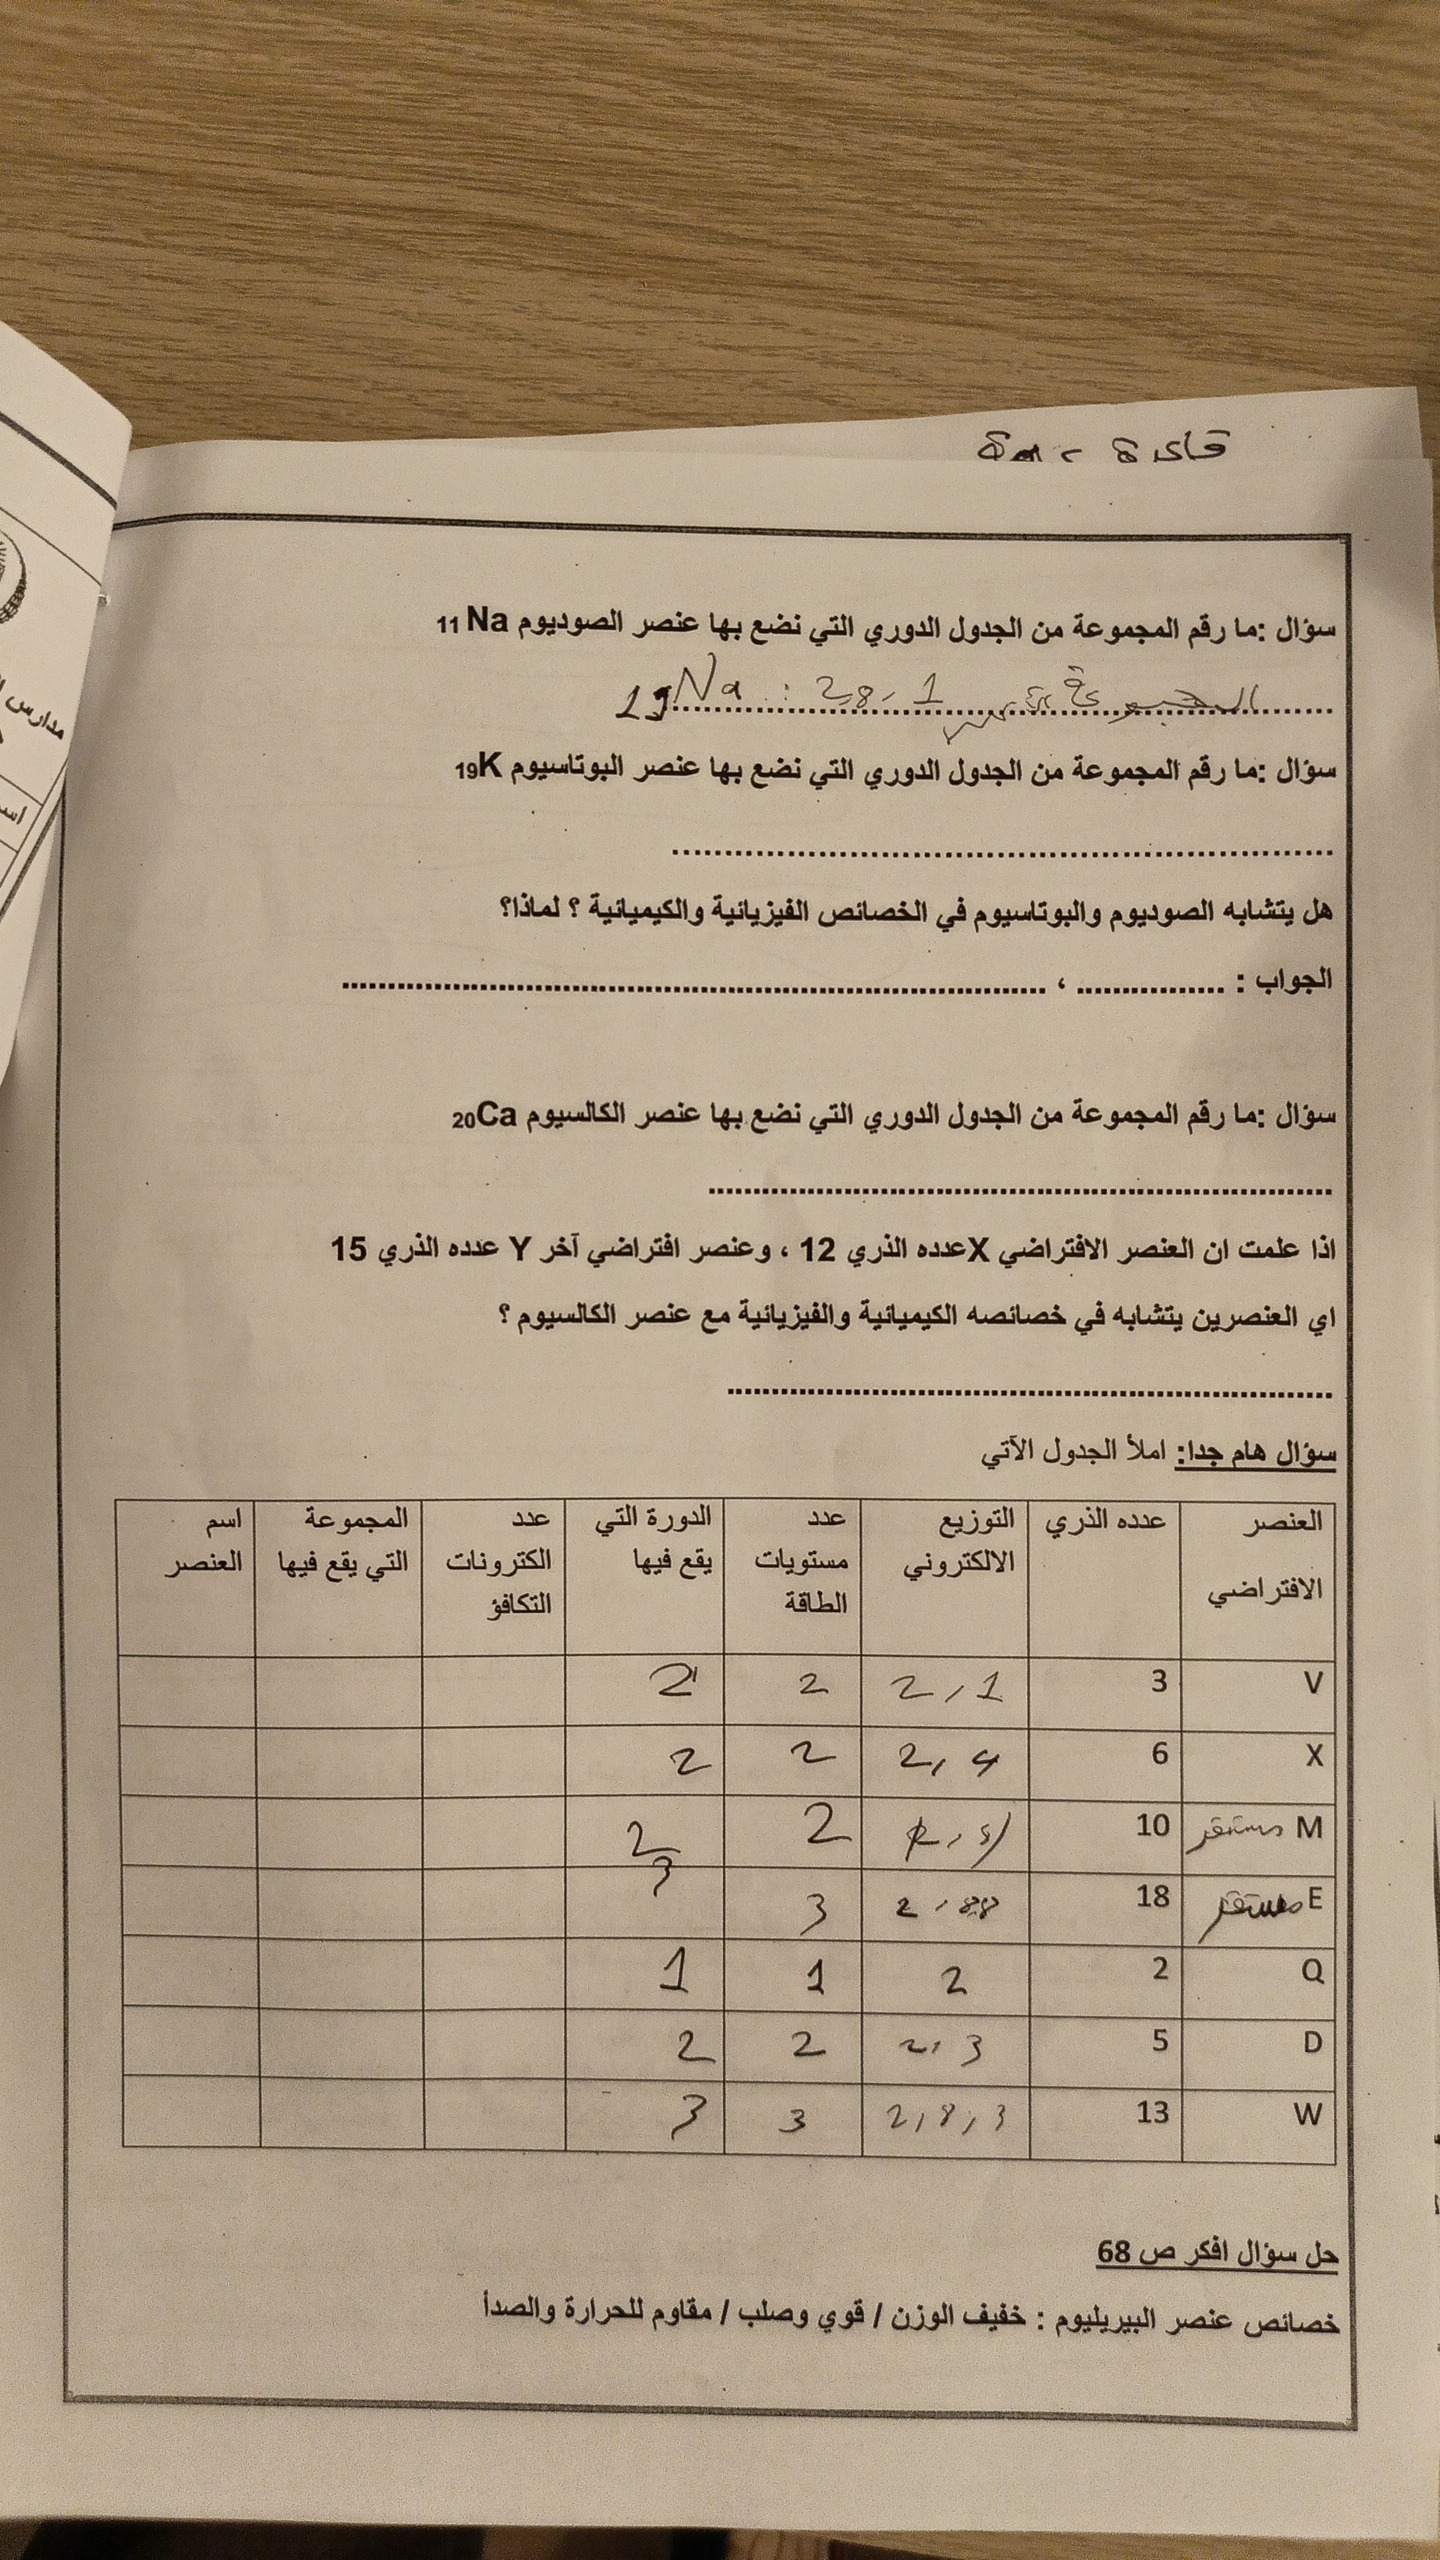 سؤال :ما رقم المجموعة من الجدول الدوري التي نضع بها عنصر الصوديوم 11Na
Na : 2,8,1 المجموعة
سؤال :ما رقم المجموعة من الجدول الدوري التي نضع بها عنصر البوتاسيوم 19K
هل يتشابه الصوديوم والبوتاسيوم في الخصائص الفيزيائية والكيميائية ؟ لماذا؟
الجواب : ................ ، ................
سؤال :ما رقم المجموعة من الجدول الدوري التي نضع بها عنصر الكالسيوم 20Ca
اذا علمت ان العنصر الافتراضي X عدده الذري 12 ، وعنصر افتراضي آخر Y عدده الذري 15
اي العنصرين يتشابه في خصائصه الكيميائية والفيزيائية مع عنصر الكالسيوم ؟
سؤال هام جدا: املأ الجدول الآتي
العنصر الافتراضي عدده الذري التوزيع الالكتروني عدد مستويات الطاقة الدورة التي يقع فيها عدد الكترونات التكافؤ المجموعة التي يقع فيها اسم العنصر
V 3 2,1 2 2
X 6 2,4 2 2
M مستقر 10 2,8 2 2
E مستقر 18 2,88 3 3
Q 2 2 1 1
D 5 2,3 2 2
W 13 2,8,3 3 3
حل سؤال افكر ص 68
خصائص عنصر البيريليوم : خفيف الوزن / قوي وصلب / مقاوم للحرارة والصدأ